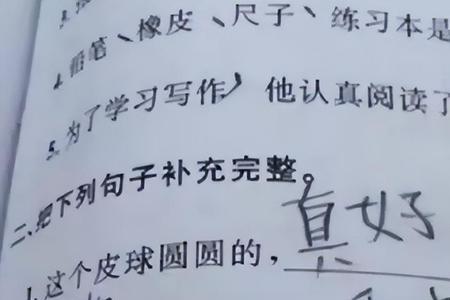 4.铅笔、橡皮、尺子、练习本是
5.为了学习写作，他认真阅读了
二、把下列句子补充完整。
1.这个皮球圆圆的，真好